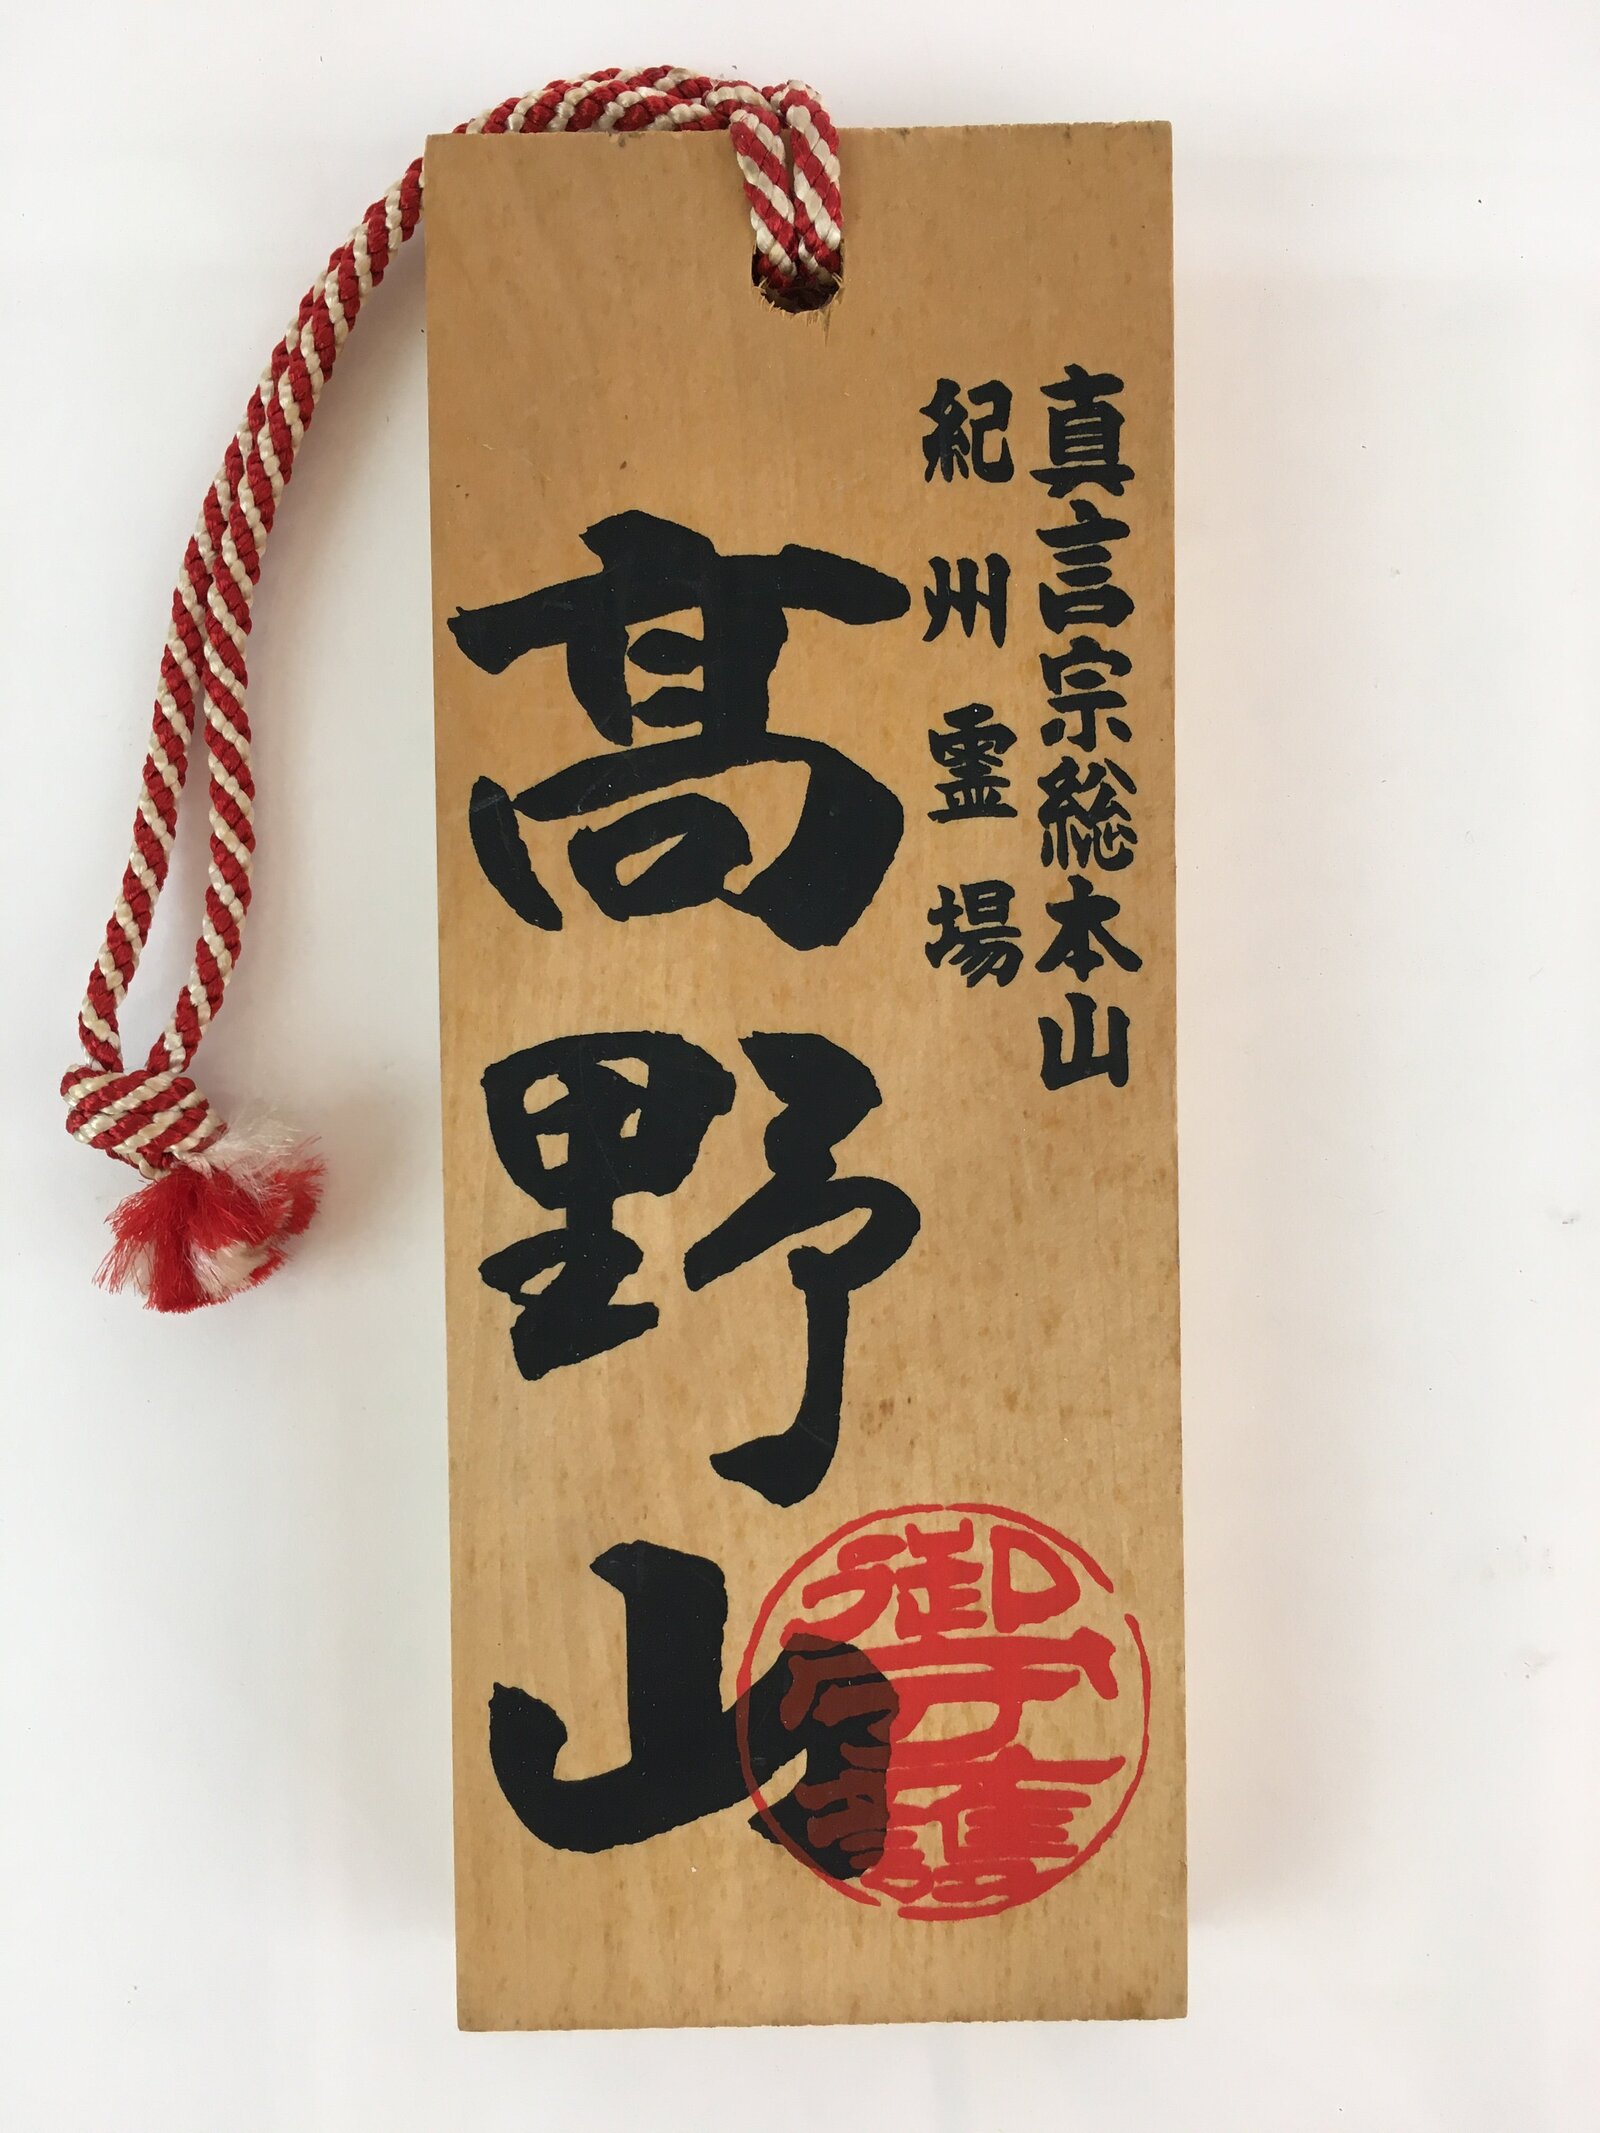 真言宗総本山
紀州霊場
髙野山
御守護